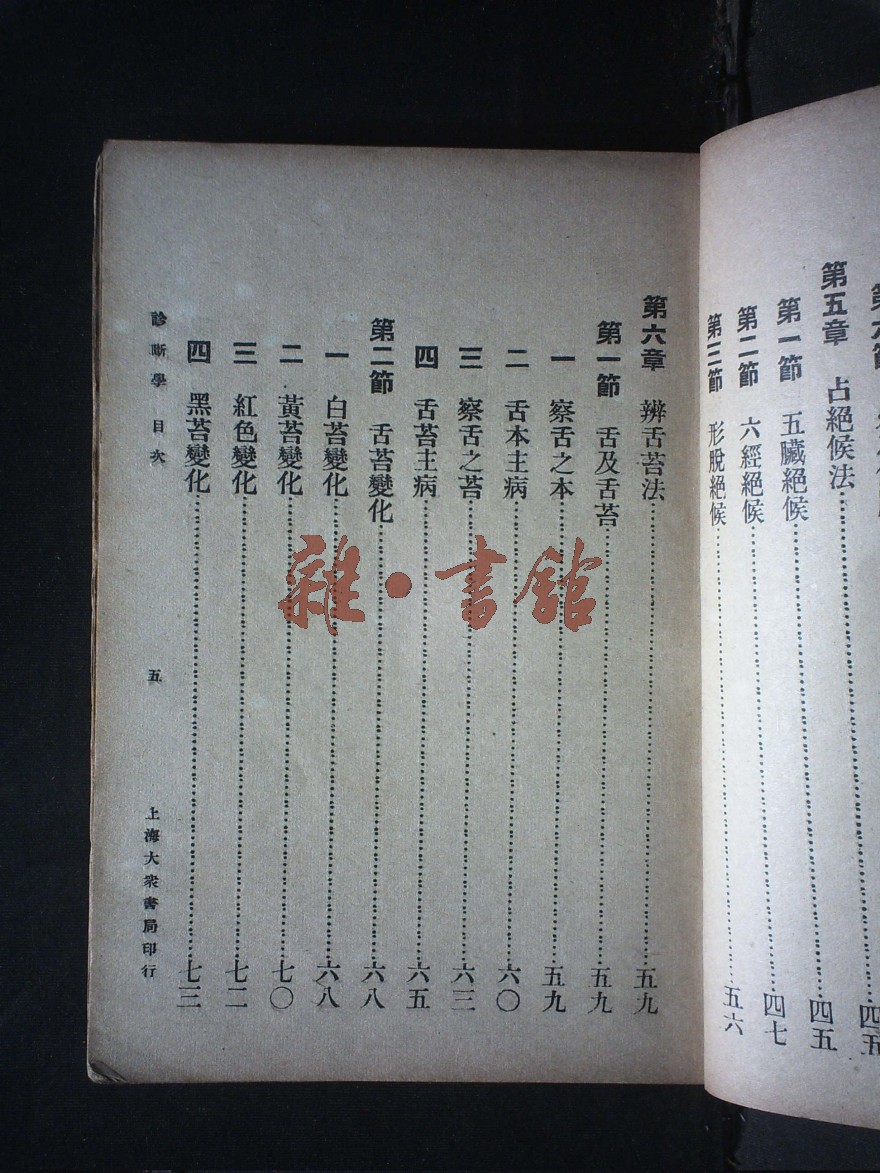 第五章 占絕候法 四五
第一節 五臟絕候 四五
第二節 六經絕候 四七
第三節 形脫絕候 五六
第六章 辨舌苔法 五九
第一節 舌及舌苔 五九
一 察舌之本 五九
二 舌本主病 六〇
三 察舌之苔 六三
四 舌苔主病 六五
第二節 舌苔變化 六八
一 白苔變化 六八
二 黃苔變化 七〇
三 紅色變化 七二
四 黑苔變化 七三
診斷學 目次 五 上海大衆書局印行
雜·書館